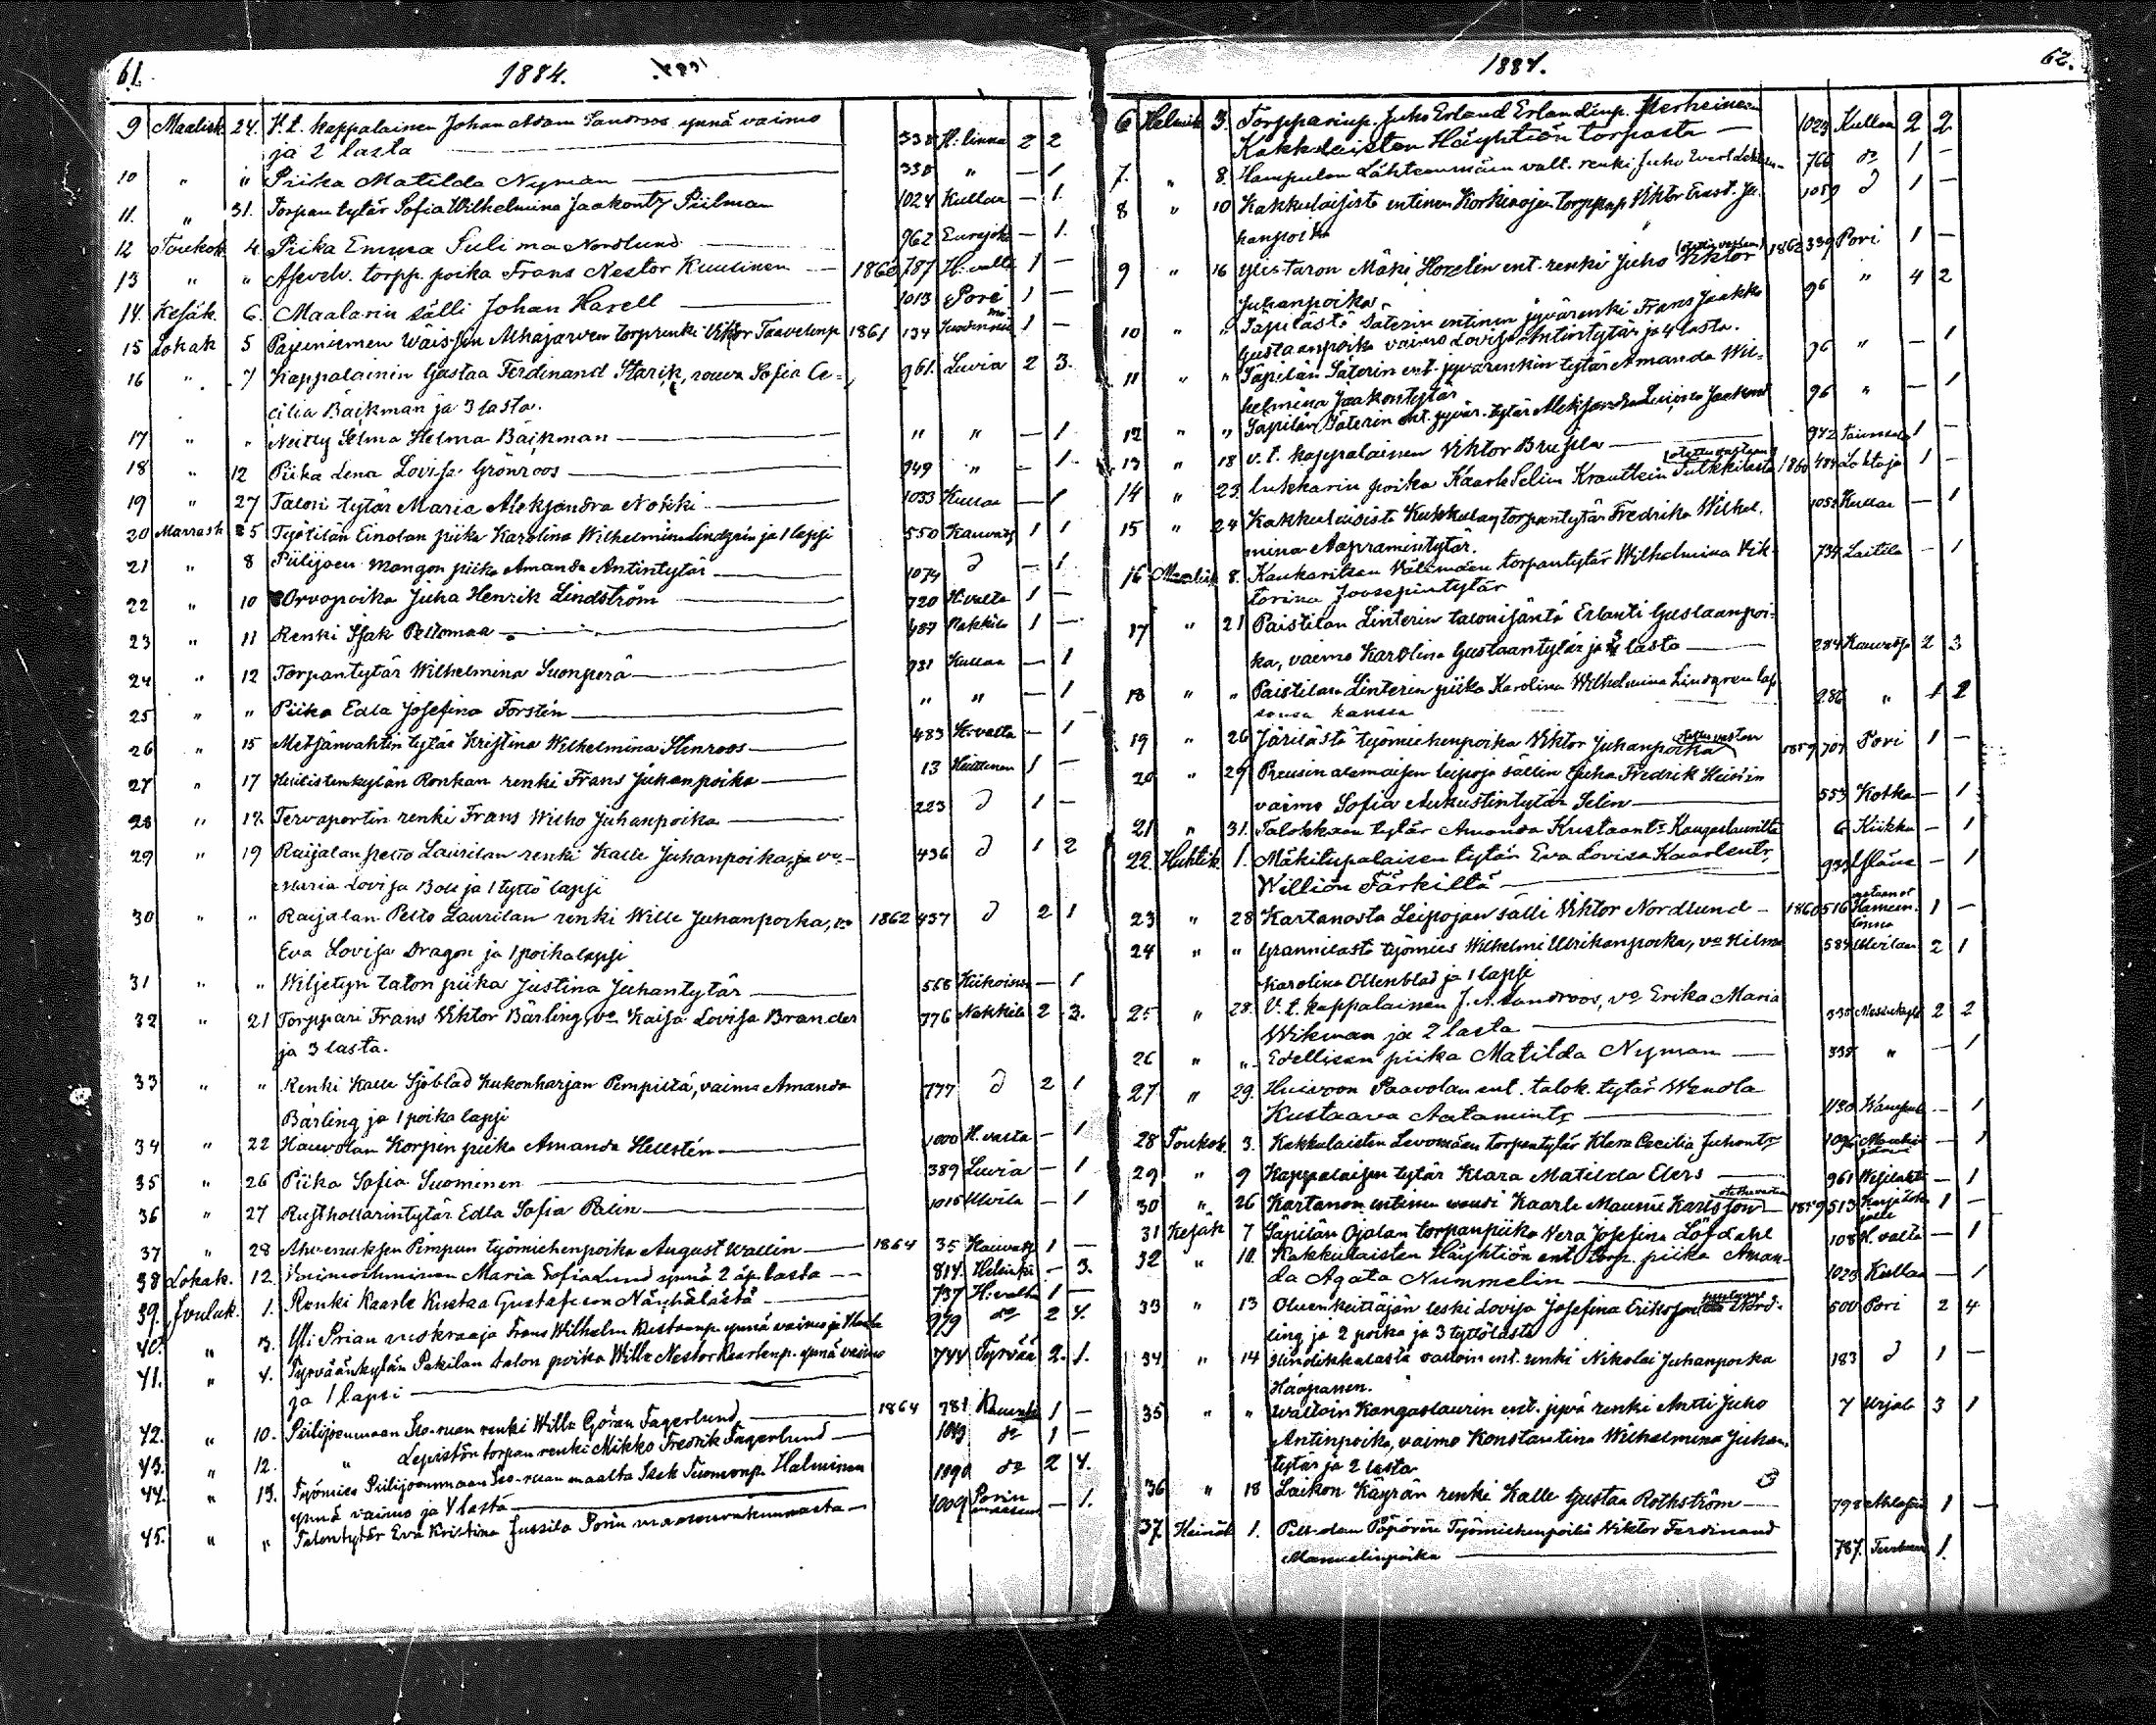 61.
1884.
9 Maalisk. 24. V. t. kappalainen Johan Adam Sandroos ynnä vaimo
ja 2 lasta 338 H:linna 2 2
10 " " Piika Matilda Nyman 338 " — 1
11. " 31. Torpan tytär Sofia Wilhelmina Jaakontr Piilman 1024 Kullaa — 1.
12 Toukok. 4. Piika Emma Nordlund 962 Eurajoki — 1.
13 " " Asevelv. torpp. poika Frans Nestor Kuusinen 787 H:valta 1 —
14. Kesäk. 6. Maalarin sälli Johan Harell 1013 Pori 1 —
15 Lokak 5 torp renki Viktor Taavetinp 1861 134 1 —
16 " 7 Kappalainin Gustaa Ferdinand Starck, rouva Sofia Ce-
cilia Bäckman ja 3 lasta. 961. Luvia 2 3.
17 " " Neitty Selma Helma Bäckman " " — 1
18 " 12 Piika Lena Lovisa Grönroos 949 " — 1.
19 " 27 Talon tytär Maria Aleksandra Nokki 1033 Kullaa — 1
20 Marrask 5 Työtilän Einolan piika Karolina Wilhelmina Lindgrén ja 1 lapsi 550 Kauvatsa 1 1
21 " 8 Piilijoen Mangon piika Amanda Antintytär 1074 d — 1
22 " 10 Orvopoika Juha Henrik Lindström 720 H:valta 1 —
23 " 11 Renki Isak Peltomaa 487 Nakkila 1 —
24 " 12 Torpantytär Wilhelmina Suonperä 931 Kullaa — 1
25 " " Piika Edla Josefina Forstén " " — 1
26 " 15 Metsänvahtin tytär Kristina Wilhelmina Stenroos 483 H:valta — 1
27 " 17 Ronkan renki Frans Juhanpoika 13 Huittinen 1 —
28 " 17. Tervaportin renki Frans Wilho Juhanpoika 223 d 1 —
29 " 19 Raijalan Pelto Laurilan renki Kalle Juhanpoika, ja vo-
Maria Lovisa Boll ja 1 tyttö lapsi 436 d 1 2
30 " " Raijalan Pelto Laurilan renki Wille Juhanpoika, vo
Eva Lovisa Dragon ja 1 poikalapsi 1862 437 d 2 1
31 " " Wiljetyn talon piika Justina Juhantytär 568 Kiikoinen — 1
32 " 21 Torppari Frans Viktor Bärling, vo Kaisa Lovisa Brander
ja 3 lasta. 776 Nakkila 2 3.
33 " " Renki Kalle Sjöblad Kukonharjan Pempiltä, vaimo Amanda
Bärling ja 1 poika lapsi 777 d 2 1
34 " 22 Hauvolan Korpin piika Amanda Hellstén 1000 H.valta — 1
35 " 26 Piika Sofia Suominen 389 Luvia — 1
36 " 27 Rusthollarintytär Edla Sofia Palin 1015 Ulvila — 1
37 " 28 Ahvenuksen Pimpun työmiehenpoika August Wallin 1864 35 Kauvatsa 1 —
38 Lokak. 12. Maria Sofia Lund ynnä 2 äp. lasta 814. Helsinki — 3.
39. Jouluk. 1. Renki Kaarle Kustaa Gustafsson 737 H:valta 1 —
40. " 3. Yli Prian Frans Wilhelm Kustaanp. ynnä vaimo ja 4 lasta 979 do 2 4.
41. " 4. Tyrväänkylän Pakilan talon poika Wille Nestor Kaarlenp. ynnä vaimo
ja 1 lapsi 744 Tyrvää 2. 1.
42. " 10. Piilijoenmaan renki Wille Göran Fagerlund 1864 781 1 —
43. " 12. " Lepistön torpan renki Mikko Fredrik Fagerlund 1049 do 1 —
44. " 13. Työmies Piilijoenmaan maalta Isak Tuomonp. Halminen
ynnä vaimo ja 4 lasta 1090 do 2 4.
45. " " Talontytär Eva Kristina Jussila Porin maaseurakunnasta 1009 Porin maaseur. — 1.
62.
1884.
6 Helmik 3. Torpparinp. Juho Erland Erlandinp.
Kakkulaisten Häyhtiön torpasta 1023 Kullaa 2 2
7. " 8. Hampulan Lähteenmäen valt. renki Juho 766 do 1 —
8 " 10 Kakkulaisista entinen Korkinojan torppap Viktor Ernst. Ju-
hanpoika 1059 d 1 —
9 " 16 Ylistaron Mäki Hozelin ent. renki Juho Viktor
Juhanpoika (otettu vastaan) 1862 339 Pori 1 —
10 " " Säpilästä Säterin entinen jyvärenki Frans Jaakko
Gustaanpoika vaimo Lovisa Antintytär ja 4 lasta. 96 " 4 2
11 " " Säpilän Säterin ent. jyvärenkin tytär Amanda Wil-
helmina Jaakontytär 96 " — 1
12 " " Säpilän Säterin ent. jyvär. tytär Aleksandra Jaakont 96 " — 1
13 " 18 v. t. kappalainen Viktor Brusila 942 1 —
14 " 23. Lukkarin poika Kaarle Selim Krautlein Tulkkilasta (otettu vastaan) 1860 484 Lohtaja 1 —
15 " 24 Kakkulaisista Kukkulan torpantytär Fredrika Wilhel-
mina Aapramintytär. 1052 Kullaa — 1
16 Maalisk 8. Kaukaritsan Välimäen torpantytär Wilhelmina Vik-
torina Joosepintytär 734 Laitila — 1
17 " 21 Paistilan Linterin talonisäntä Erlanti Gustaanpoi-
ka, vaimo Karolina Gustaantytär ja 3 lasta 284 Kauvatsa 2 3
18 " " Paistilan Linterin piika Karolina Wilhelmina Lindgren lap-
sensa kanssa 286 " 1 2
19 " 26 Järilästä työmiehenpoika Viktor Juhanpoika otettu vastaan 1859 707 Pori 1 —
20 " 29 Preusin alamaisen leipoja sällin Juha Fredrik
vaimo Sofia Aukustintytär Selin 553 Kotka — 1
21 " 31. Talokkaan tytär Amanda Kustaantr Kangaslaurilta 6 Kiikka — 1
22. Huhtik. 1. Mäkitupalaisen tytär Eva Lovisa Kaarlentr,
Williön Färkiltä 933 Yläne — 1
23 " 28 Kartanosta Leipojan sälli Viktor Nordlund 1860 516 Hämeen-linna 1 —
24 " " Grannilasta työmies Wilhelmi Ulrikanpoika, vo Hilma
Karolina Ollenblad ja 1 lapsi 584 Ulvilaan 2 1
25 " 28. V. t. kappalainen J. A. Sandroos, vo Erika Maria
Wikman ja 2 lasta 338 Messukylä 2 2
26 " " Edellisen piika Matilda Nyman 338 " — 1
27 " 29. Huivoon Paavolan ent. talok. tytär Wendla
Kustaava Aatamintr 1130 — 1
28 Toukok. 3. Kakkulaisten Levomäen torpantytär Klara Cecilia Juhontr — 1
29 " 9 Kappalaisen tytär Klara Matilda Elers 961 Vesilahti — 1
30 " 26 Kartanon entinen voudi Kaarle Maunu Karlsson otettu vastaan 1859 513 Karjalohjalle 1 —
31 Kesäk 7 Säpilän Ojalan torpanpiika Vera Josefina Löfdahl 108 H. valta — 1
32 " 10. Kakkulaisten Häyhtiön ent. torp. piika Aman-
da Agata Nummelin 1023 Kullaa — 1
33 " 13 Oluenkeittäjän leski Lovisa Josefina Eriksson
ling ja 2 poika ja 3 tyttölasta 500 Pori 2 4
34 " 14 Hindikkalasta valtoin ent. renki Nikolai Juhanpoika
Haapanen. 183 d 1 —
35 " " Waltoin Kangaslaurin ent. jyvä renki Antti Juho
Antinpoika, vaimo Konstantina Wilhelmina Juhan-
tytär ja 2 lasta 7 Urjala 3 1
36 " 18 Laikon Käyrän renki Kalle Gustaa Rothström 798 1 —
37. Heinäk 1. Työmiehenpoika Viktor Ferdinand
Manuelinpoika 787. 1.